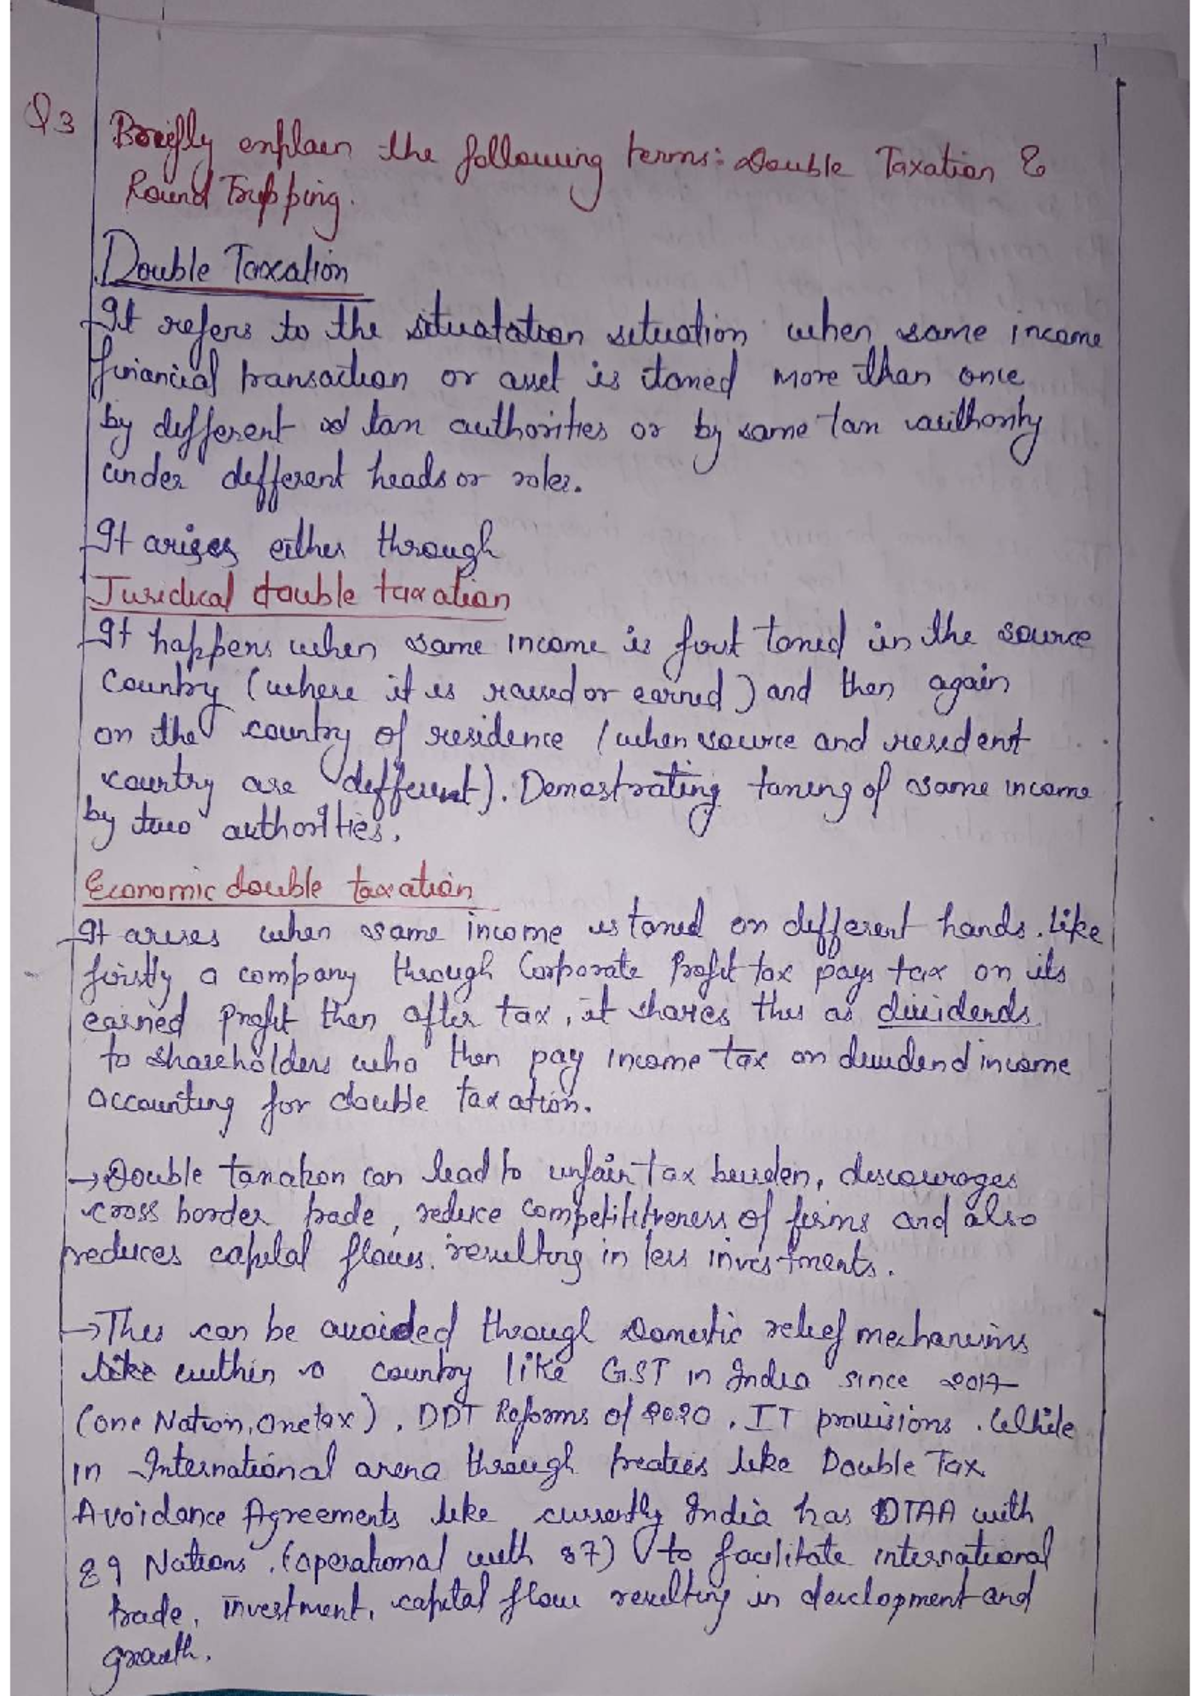 Q3 Briefly explain the following terms: Double Taxation &
Round Tripping.
Double Taxation
It refers to the situatation situation when same income
financial transaction or asset is taxed more than once
by different tax authorities or by same tax authority
under different heads or roles.
It arises either through
Juridical double taxation
It happens when same income is first taxed in the source
country (where it is raised or earned) and then again
on the country of residence (when source and resident
country are different). Demostrating taxing of same income
by two authorities.
Economic double taxation
It arises when same income is taxed on different hands. Like
firstly a company through Corporate Profit tax pays tax on its
earned profit then after tax, it shares this as dividends
to shareholders who then pay income tax on dividend income
accounting for double taxation.
→ Double taxation can lead to unfair tax burden, discourages
cross border trade, reduce competitiveness of firms and also
reduces capital flows. resulting in less investments.
→ This can be avoided through Domestic relief mechanisms
like within a country like GST in India since 2017
(one Nation, One tax), DDT Reforms of 2020, IT provisions. While
in International arena through treaties like Double Tax
Avoidance Agreements like currently India has DTAA with
89 Nations. (operational with 87) to facilitate international
trade, investment, capital flow resulting in development and
growth.